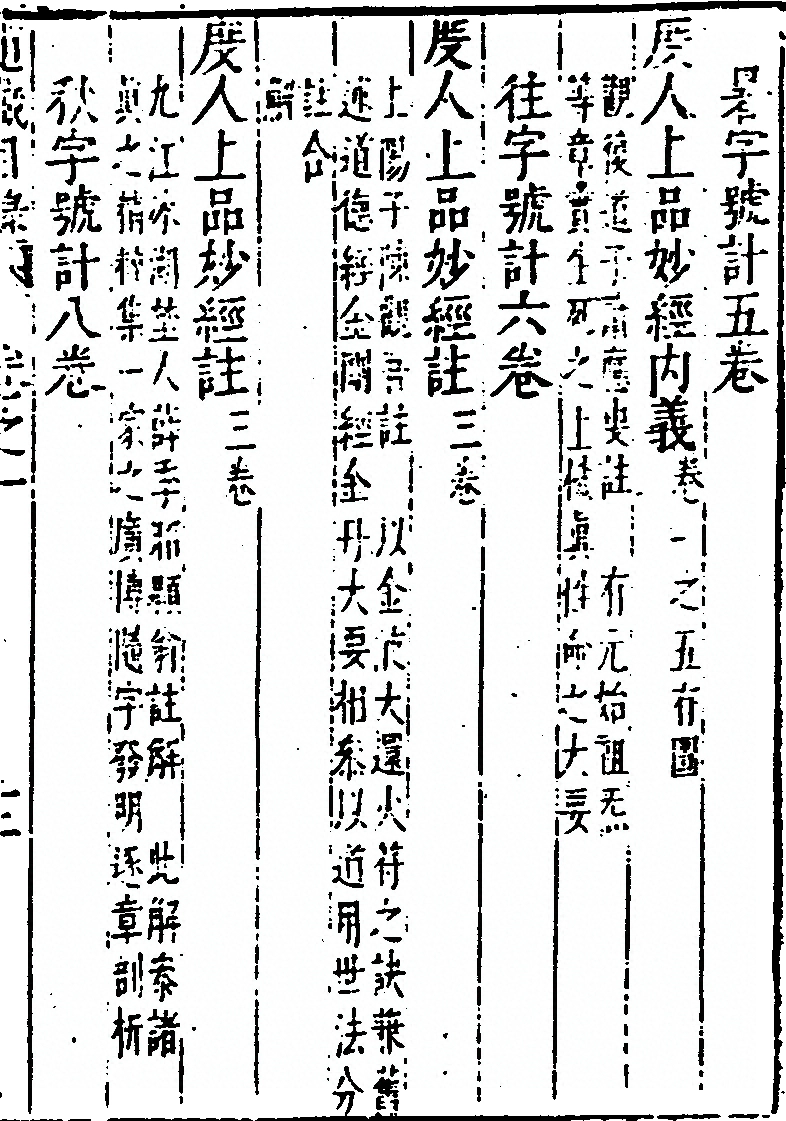 暑字號計五卷
度人上品妙經內義卷一之五有圖
觀復道子甫應叟註 有元始祖炁
等章實生死之上機真性命之大要
往字號計六卷
度人上品妙經註三卷
上陽子陳觀吾註 以金液大還火符之訣兼舊
述道德經金剛經金丹大要相叅以道用世法分
註合
解
度人上品妙經註三卷
九江 湖 人薛季昭顯翁註解 此解叅諸
真之精粹集一家之廣博隨字發明逐章剖析
秋字號計八卷
道藏目錄 卷之一 十二